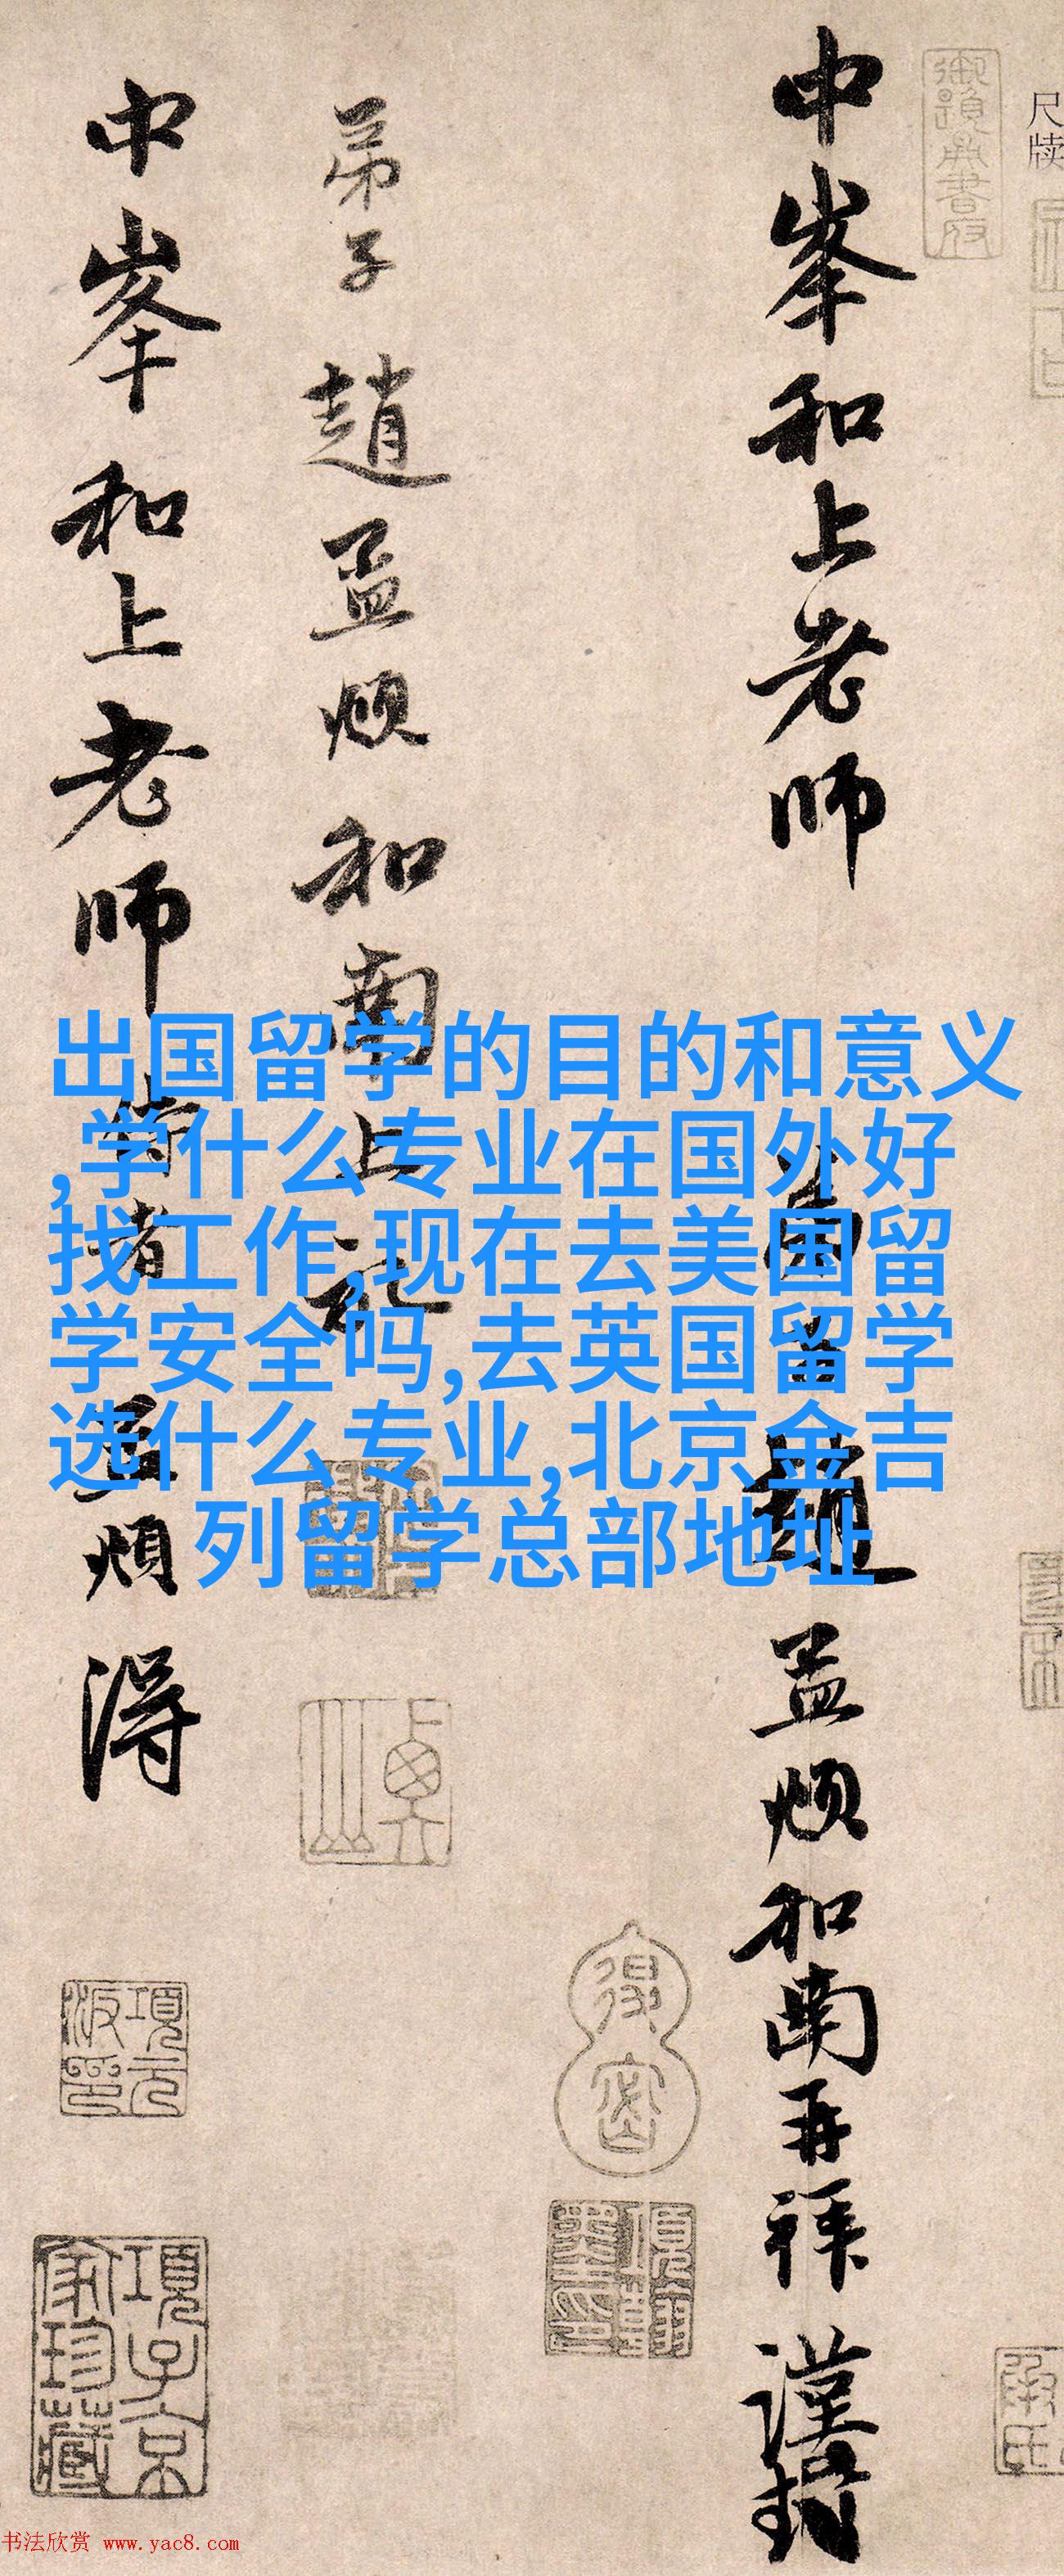 尺牍
中峯和上老师
趙孟頫和南再拜謹封
弟子趙孟頫和南上
中峯和上老师侍者 孟頫
出国留学的目的和意义
,学什么专业在国外好
找工作,现在去美国留
学安全吗,去英国留学
选什么专业,北京金吉
列留学总部地址
項元汴印
項子京家珍藏
书法欣赏 www.yac8.com